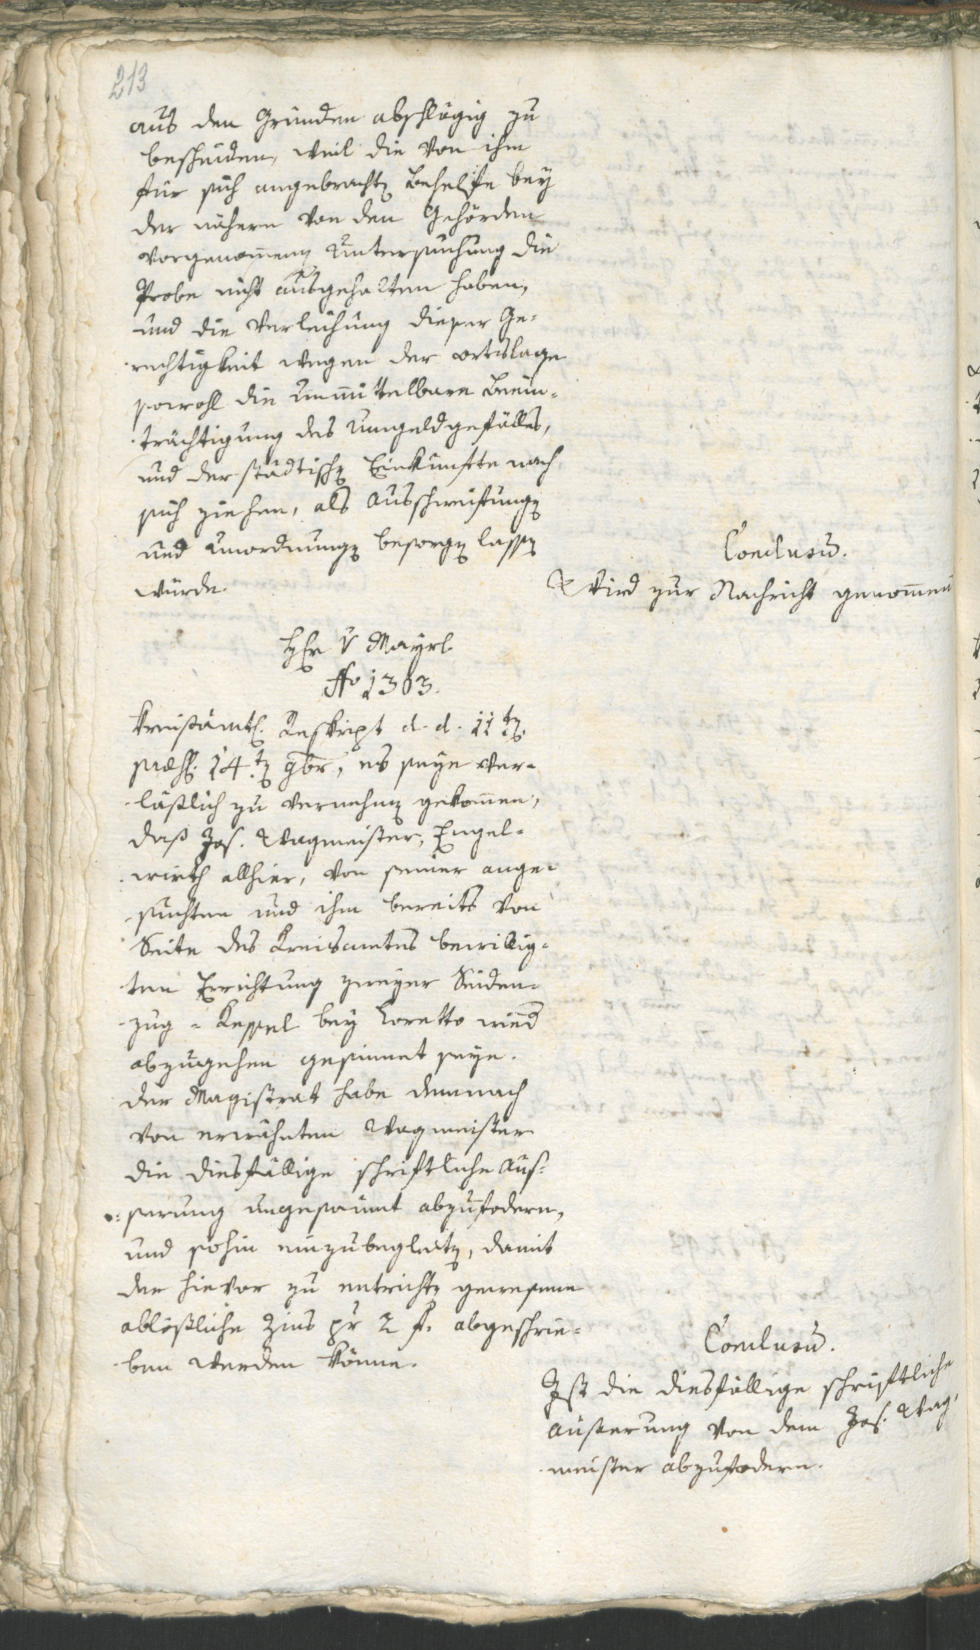 213
aus den Gründen abschlägig zu
bescheiden, weil die von ihm
für sich angebrachte Behelfe bey
der nähern von den Gehörden
vorgenommenen Untersuchung die
Probe nicht ausgehalten haben,
und die Verleihung dieser Ge-
rechtigkeit wegen der ortslage
sowohl die unmittelbare Beein-
trächtigung des Umgeldgefälles,
und der städtischen Einkünfte nach
sich ziehen, als Ausschweifungen
und Unordnungen besorgen lassen
würde.
Conclusũ.
Wird zur Nachricht genommen
Hr v Mayrl
No 1303.
Kreisämtl. Reskript d. d. 11ten
praes. 14ten 9br, es seye ver-
läßlich zu vernehmen gekommen,
daß Jos. Wagmeister, Engel-
wirth allhier, von seiner ange-
suchten und ihm bereits von
Seite des Kreisamtes bewillig-
ten Errichtung zweyer Seiden-
zug-Kessel bey Loretto wied
abzugehen gesinnet seye.
Der Magistrat habe demnach
von erwähnten Wagmeister
die diesfällige schriftliche Aüs-
serung ungesäumt abzufodern,
und sohin einzubegleiten, damit
der hievor zu entrichten gewesene
ablößliche Zins pr 2 f. abgeschrie-
ben werden könne.
Conclusũ.
Ist die diesfällige schriftliche
äusserung von dem Jos. Wag-
meister abzufodern.